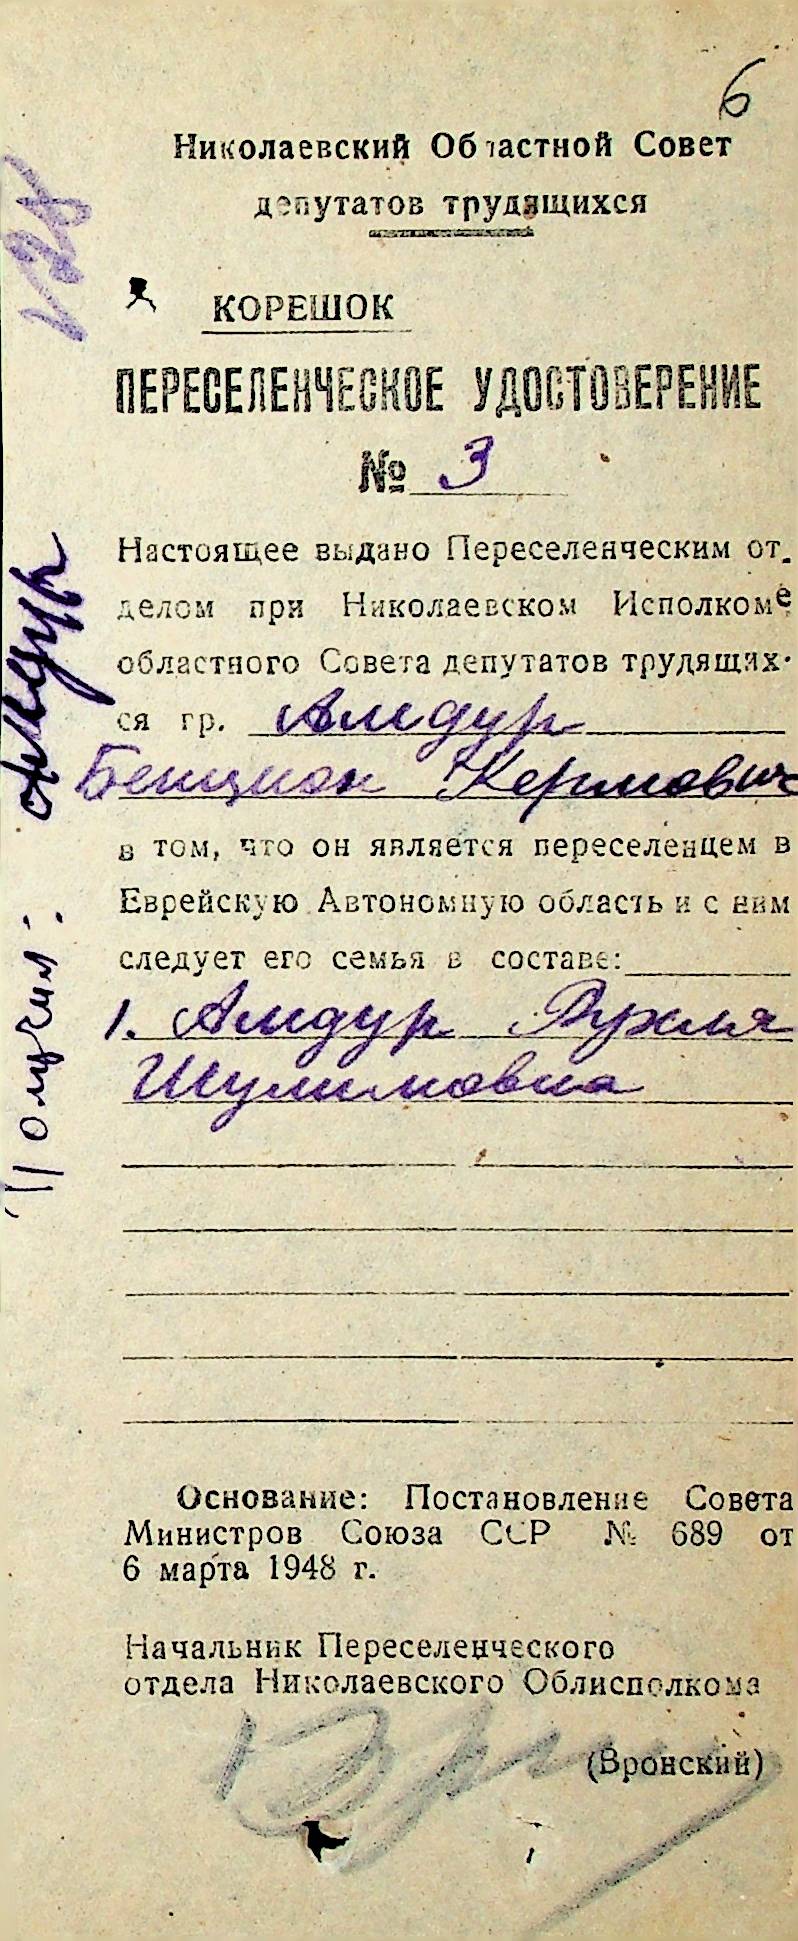 6
Николаевский Областной Совет
депутатов трудящихся
КОРЕШОК
ПЕРЕСЕЛЕНЧЕСКОЕ УДОСТОВЕРЕНИЕ
№ 3
Настоящее выдано Переселенческим от.
делом при Николаевском Исполкоме
областного Совета депутатов трудящих-
ся гр. Амдур
Бенцион
в том, что он является переселенцем в
Еврейскую Автономную область и с ним
следует его семья в составе:
1. Амдур Рухля
Шулимовна
Основание: Постановление Совета
Министров Союза ССР № 689 от
6 марта 1948 г.
Начальник Переселенческого
отдела Николаевского Облисполкома
(Вронский)
Получил: Амдур